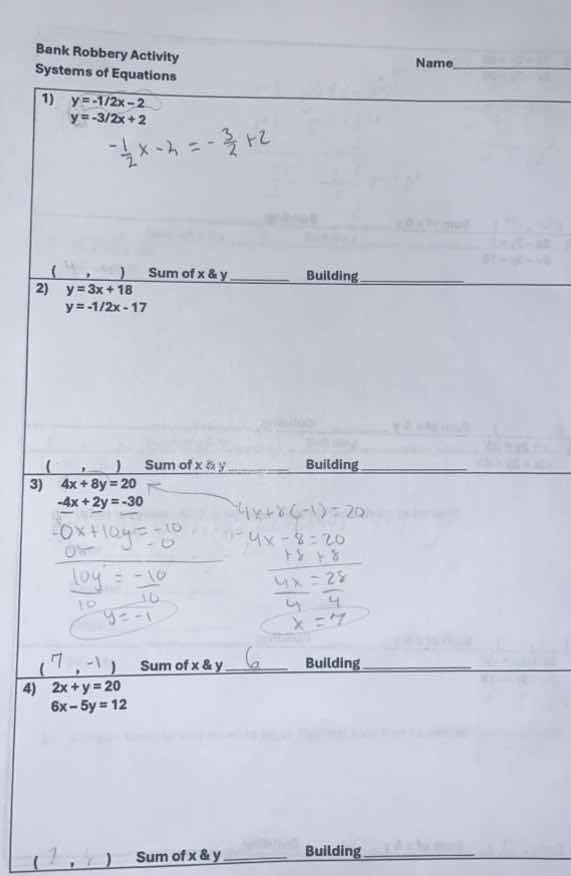 Bank Robbery Activity
Name
Systems of Equations
1) y = -1/2x – 2
y = -3/2x + 2
-1/2 x - 2 = - 3/2 + 2
( 4 , ) Sum of x & y Building
2) y = 3x + 18
y = -1/2x - 17
( , ) Sum of x & y Building
3) 4x + 8y = 20
-4x + 2y = -30
0x + 10y = -10
10y = -10
10 10
y = -1
4x + 8(-1) = 20
4x - 8 = 20
+8 +8
4x = 28
4 4
x = 7
( 7 , -1 ) Sum of x & y 6 Building
4) 2x + y = 20
6x – 5y = 12
( , ) Sum of x & y Building